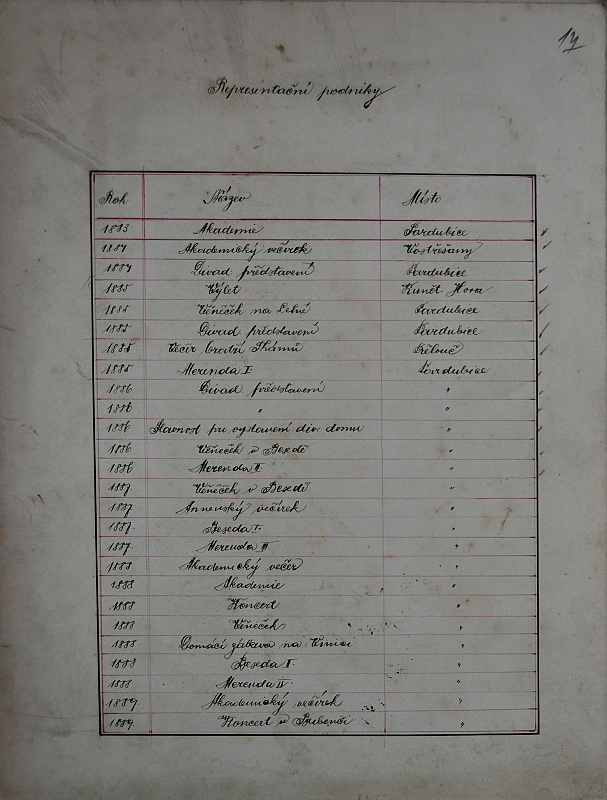 17
Representační podniky
Rok Název Místo
1883 Akademie Pardubice
1884 Akademický večírek Vostřešany
1884 Divad představení Pardubice
1885 Výlet Kunět. Hora
1885 Věneček na Letné Pardubice
1885 Divad představení Pardubice
1885 Večer bratří Přelouč
1885 Merenda I Pardubice
1886 Divad představení "
1886 " "
1886 Slavnost pro vystavení div. domu "
1886 Věneček v Besedě "
1886 Merenda II "
1887 Věneček v Besedě "
1887 Annenský večírek "
1887 Beseda I. "
1887 Merenda III "
1888 Akademický večer "
1888 Akademie "
1888 Koncert "
1888 Věneček "
1888 Domácí zábava na "
1888 Beseda I "
1888 Merenda IV "
1889 Akademický večírek "
1889 Koncert u Bubeníčka "